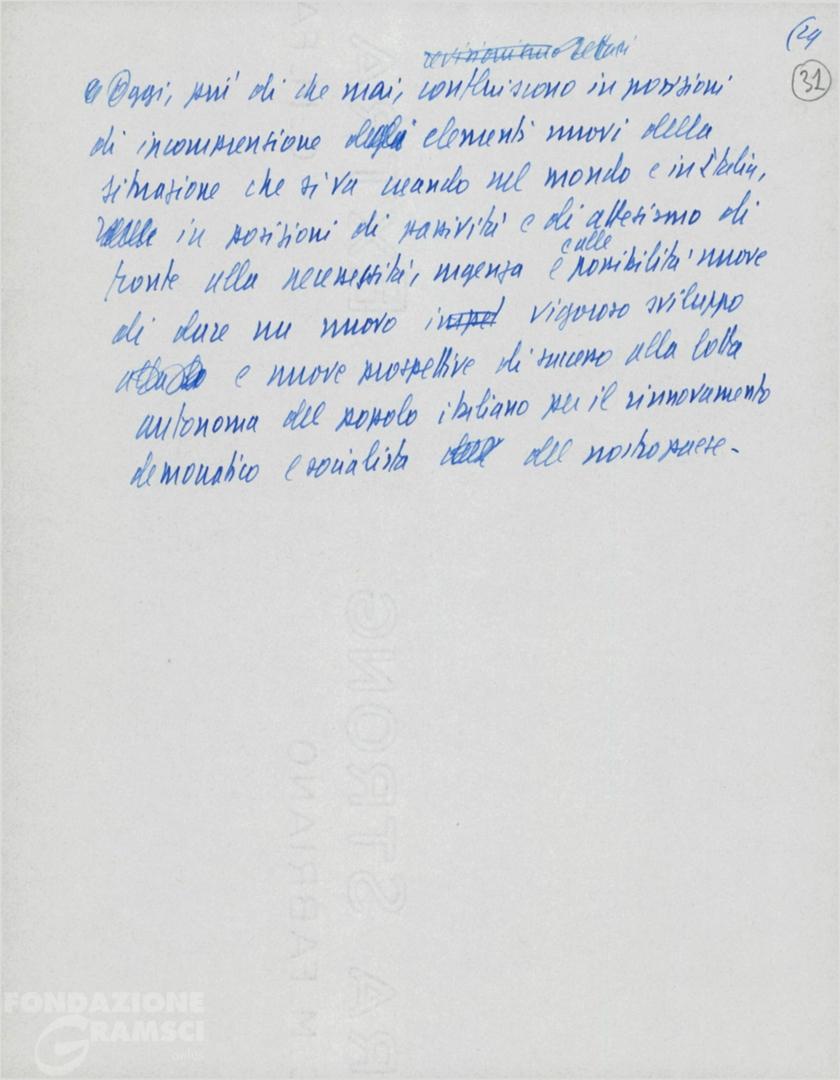 (24
31
revisionismo settari
Oggi, più di che mai, confluiscono in posizioni
di incomprensione degli elementi nuovi della
situazione che si va creando nel mondo e in Italia,
in posizioni di passività e di attesismo di
fronte alla necessità, urgenza e alle possibilità nuove
di dare un nuovo vigoroso sviluppo
e nuove prospettive di successo alla lotta
autonoma del popolo italiano per il rinnovamento
democratico e socialista del nostro paese.
RA STRONG
M FABRIANO
FONDAZIONE
GRAMSCI
onlus